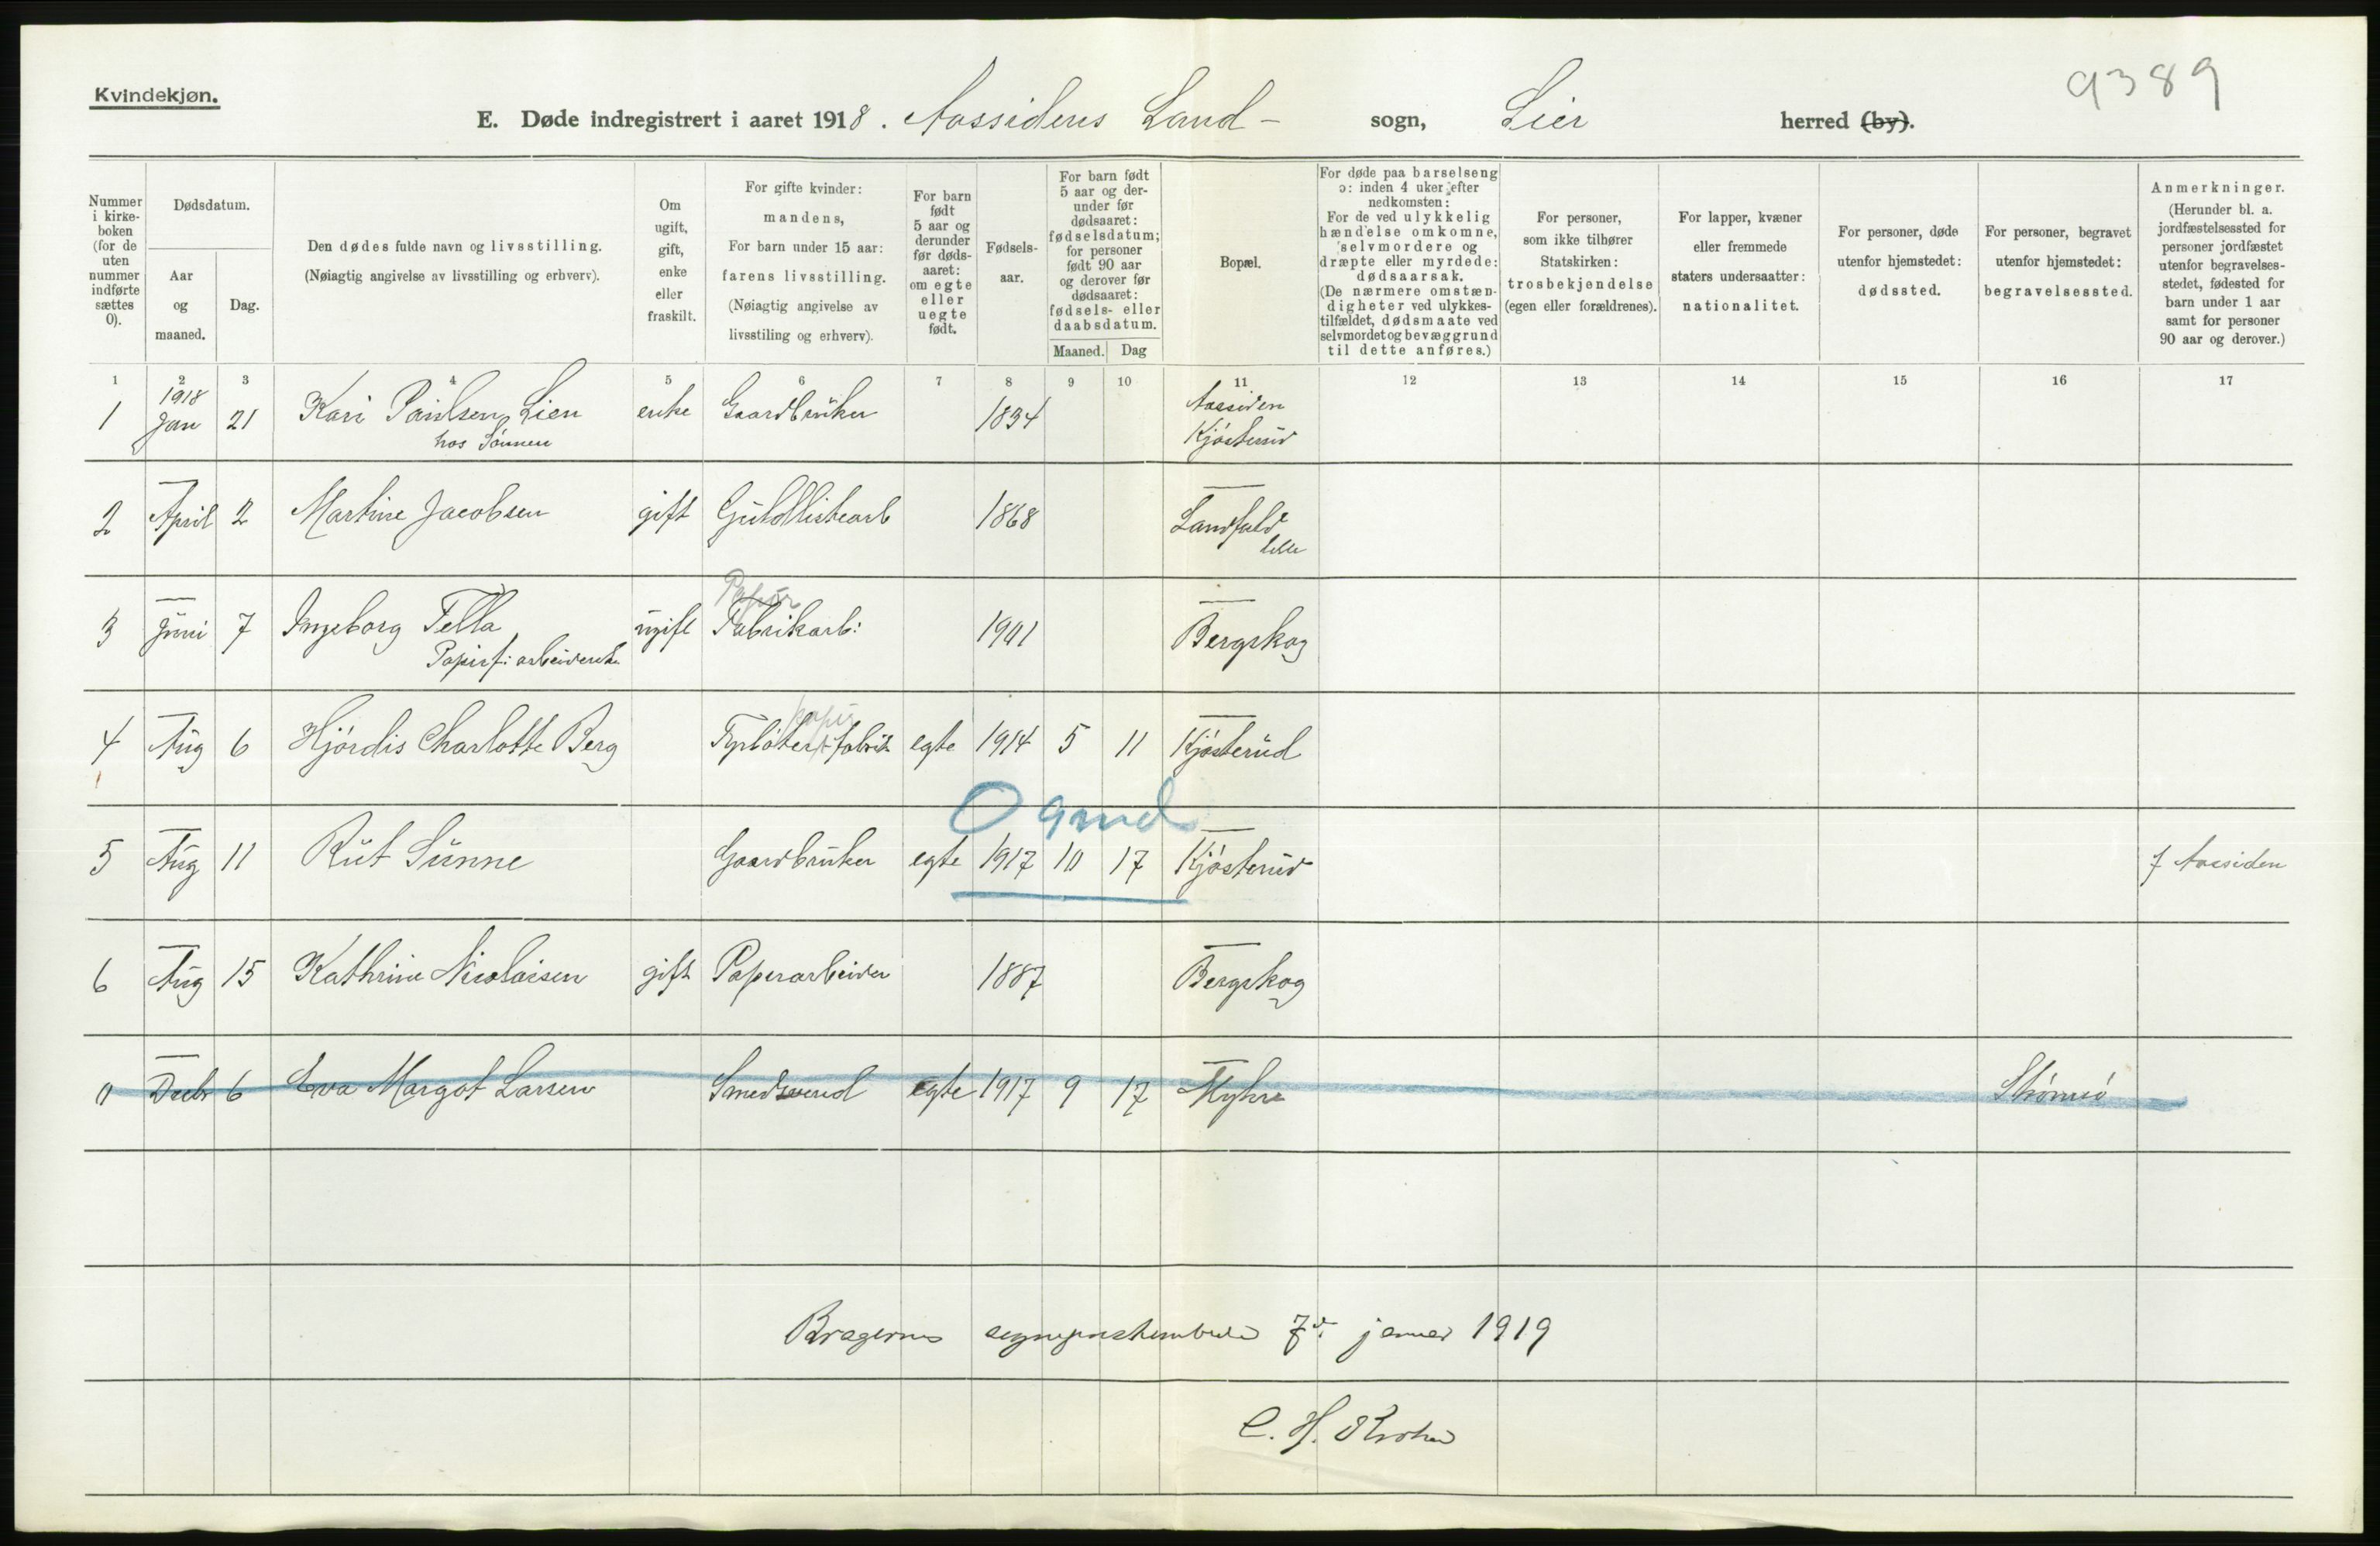 9389
Kvindekjøn.
E. Døde indregistrert i aaret 1918. Aassidens Land- sogn, Lier herred (by).
Nummer i kirke-boken (for de uten nummer indførte sættes 0).
Dødsdatum.
Aar og maaned.
Dag.
Den dødes fulde navn og livsstilling.
(Nøiagtig angivelse av livsstilling og erhverv).
Om ugift, gift, enke eller fraskilt.
For gifte kvinder: mandens,
For barn under 15 aar: farens livsstilling.
(Nøiagtig angivelse av livsstiling og erhverv).
For barn født 5 aar og derunder før døds-aaret: om egte eller uegte født.
Fødsels-aar.
For barn født 5 aar og der-under før dødsaaret: fødselsdatum; for personer født 90 aar og derover før dødsaaret: fødsels- eller daabsdatum.
Maaned. Dag
Bopæl.
For døde paa barselseng ɔ: inden 4 uker efter nedkomsten:
For de ved ulykkelig hændelse omkomne, selvmordere og dræpte eller myrdede: dødsaarsak.
(De nærmere omstæn-digheter ved ulykkes-tilfældet, dødsmaate ved selvmordet og bevæggrund til dette anføres.)
For personer, som ikke tilhører Statskirken: trosbekjendelse (egen eller forældrenes).
For lapper, kvæner eller fremmede staters undersaatter: nationalitet.
For personer, døde utenfor hjemstedet: dødssted.
For personer, begravet utenfor hjemstedet: begravelsessted.
Anmerkninger.
(Herunder bl. a. jordfæstelsessted for personer jordfæstet utenfor begravelses-stedet, fødested for barn under 1 aar samt for personer 90 aar og derover.)
1 2 3 4 5 6 7 8 9 10 11 12 13 14 15 16 17
1 1918 Jan 21 Kari Paulsen Lien enke Gaardbruker 1834 Aassiden
hos Sønnen Kjøsterud
2 — April 2 Martine Jacobsen gift Guldlistearb 1868 — Landfald
lille
Papir
3 — Juni 7 Ingeborg Tella ugift Fabrikarb: 1901 — Bergskog
Papirf: arbeiderske
papir
4 — Aug 6 Hjørdis Charlotte Berg Fyrbøter fabrik egte 1914 5 11 — Kjøsterud
0 9 md
5 — Aug 11 Rut Sunne Gaardbruker egte 1917 10 17 — Kjøsterud f Aassiden
6 — Aug 15 Kathrine Nicolaisen gift Papirarbeider 1887 — Bergskog
0 — Decbr 6 Eva Margot Larsen Smedsvend egte 1917 9 17 — Myhre Strømsø
Bragernes sogneprestembede 7de januar 1919
C. H.